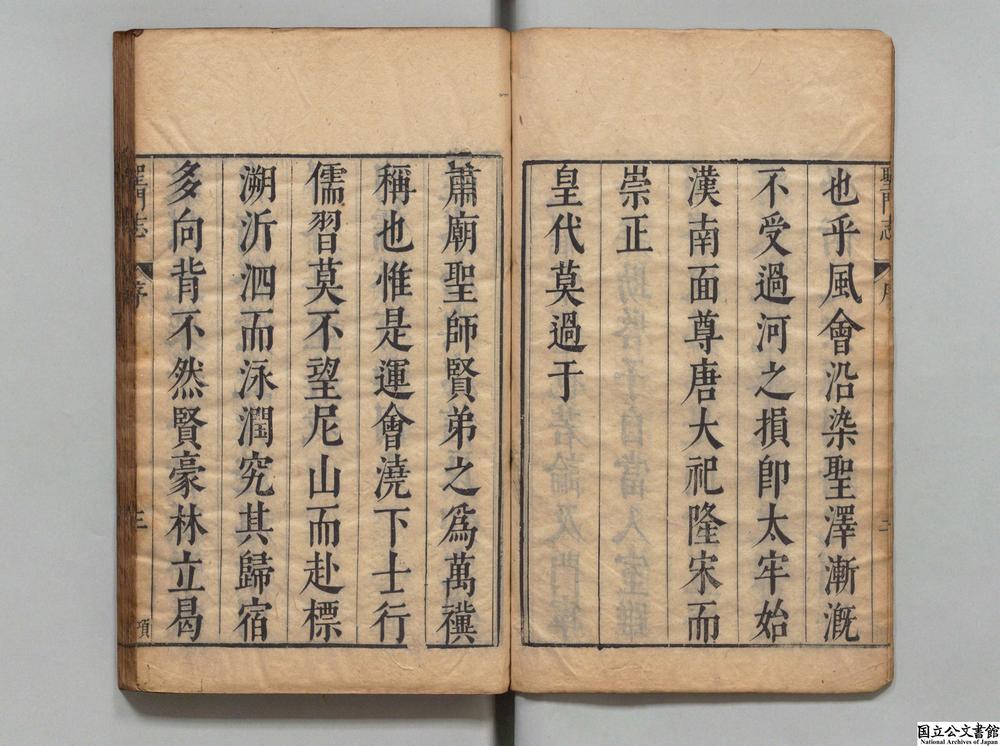 也乎風會沿染聖澤漸漑
不受過河之損卽太牢始
漢南面尊唐大祀隆宋而
崇正
皇代莫過于
肅廟聖師賢弟之爲萬禩
稱也惟是運會澆下士行
儒習莫不望尼山而赴標
溯沂泗而泳潤究其歸宿
多向背不然賢豪林立曷
聖門志 序 三
国立公文書館
National Archives of Japan